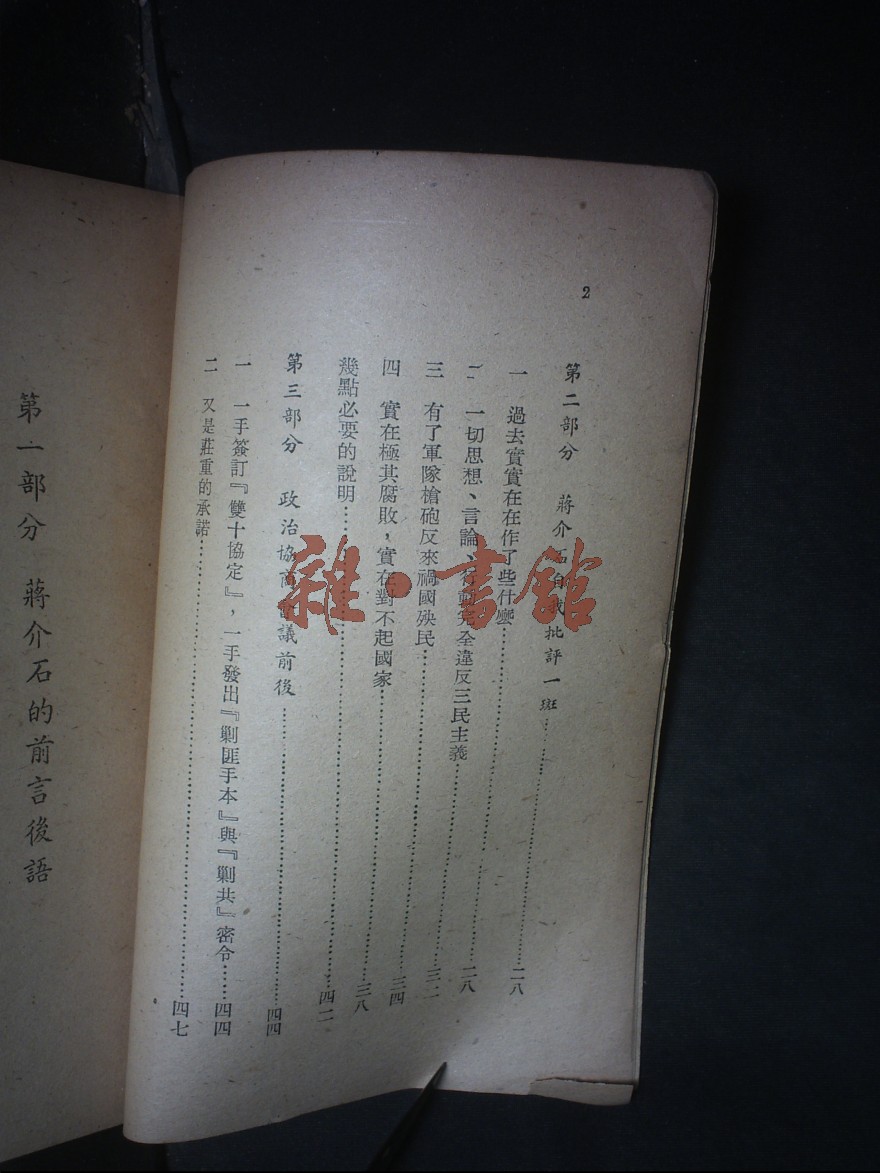 2
第二部分　蔣介石自我批評一斑……二八
一　過去實實在在作了些什麼……二八
二　一切思想、言論、行動完全違反三民主義……三二
三　有了軍隊槍砲反來禍國殃民……三四
四　實在極其腐敗，實在對不起國家……三八
幾點必要的說明……四二
第三部分　政治協商會議前後……四四
一　一手簽訂『雙十協定』，一手發出『剿匪手本』與『剿共』密令……四四
二　又是莊重的承諾……四七
第一部分　蔣介石的前言後語
雜·書館